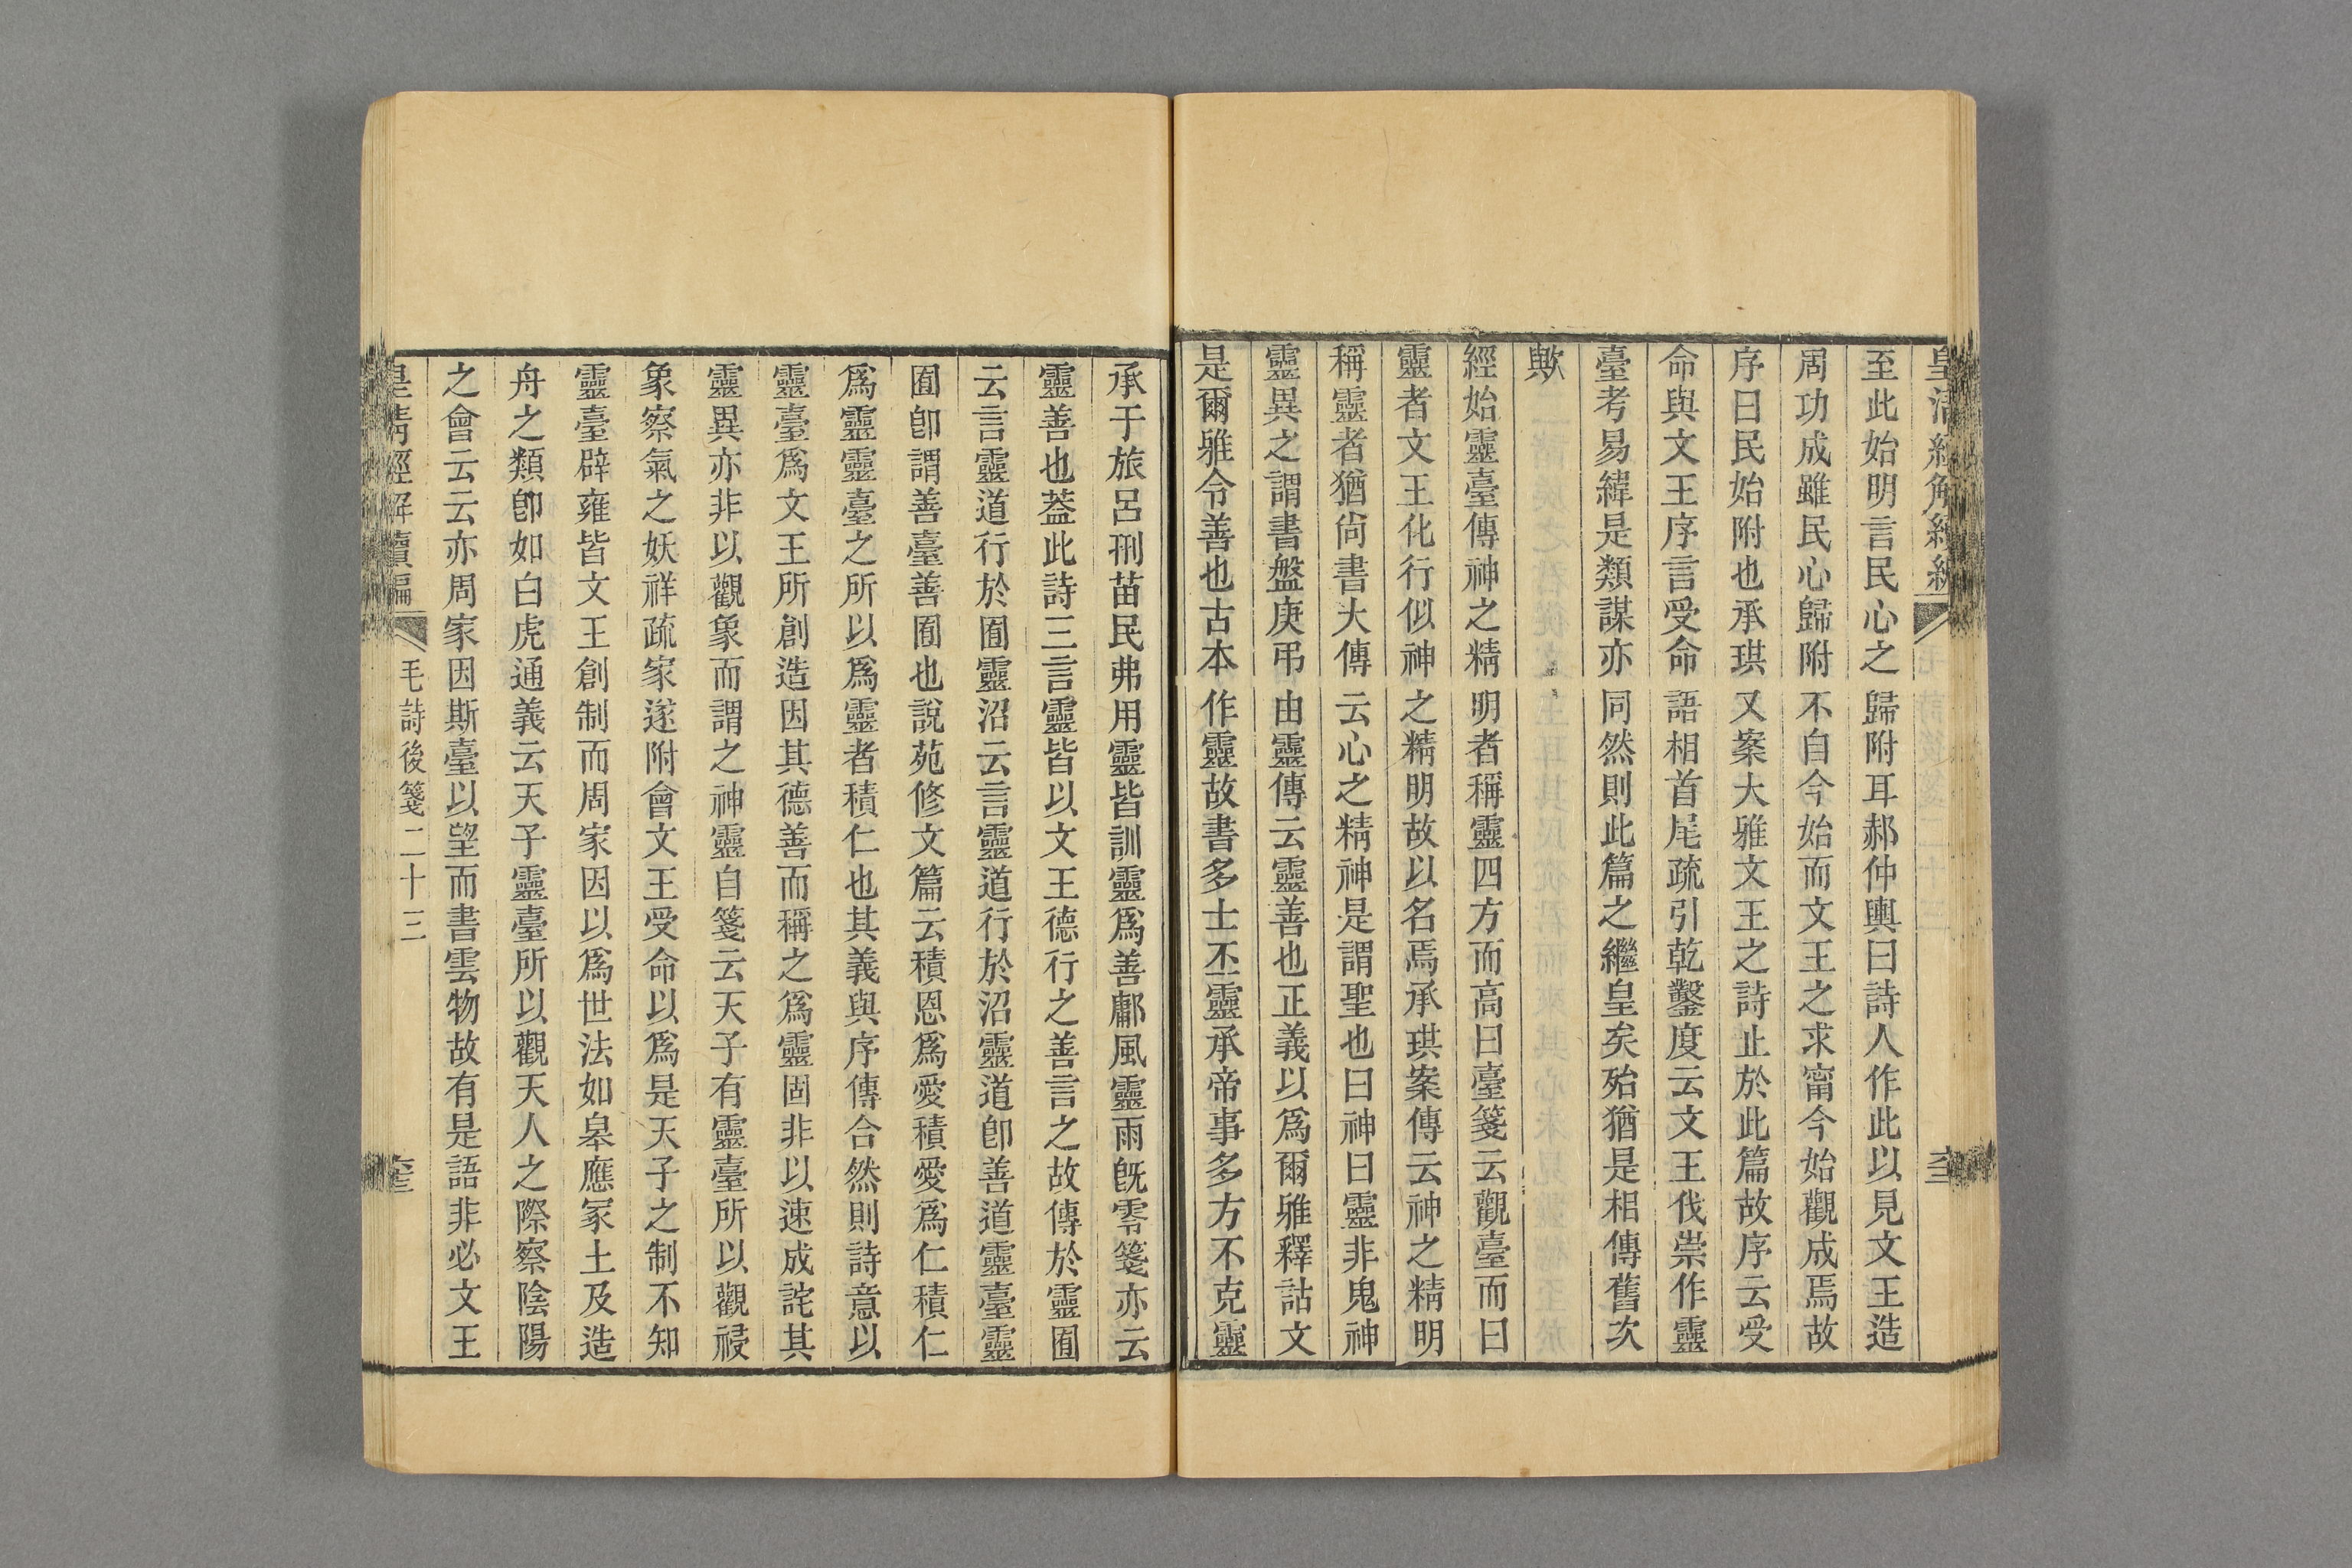 至此始明言民心之歸附耳郝仲輿曰詩人作此以見文王造
周功成雖民心歸附不自今始而文王之求甯今始觀成焉故
序曰民始附也承珙又案大雅文王之詩止於此篇故序云受
命與文王序言受命語相首尾疏引乾鑿度云文王伐崇作靈
臺考易緯是類謀亦同然則此篇之繼皇矣殆猶是相傳舊次
歟
經始靈臺傳神之精明者稱靈四方而高曰臺箋云觀臺而曰
靈者文王化行似神之精明故以名焉承珙案傳云神之精明
稱靈者猶尙書大傳云心之精神是謂聖也曰神曰靈非鬼神
靈異之謂書盤庚弔由靈傳云靈善也正義以爲爾雅釋詁文
是爾雅令善也古本作靈故書多士丕靈承帝事多方不克靈
承于旅呂刑苗民弗用靈皆訓靈爲善鄘風靈雨旣零箋亦云
靈善也葢此詩三言靈皆以文王德行之善言之故傳於靈囿
云言靈道行於囿靈沼云言靈道行於沼靈道卽善道靈臺靈
囿卽謂善臺善囿也說苑修文篇云積恩爲愛積愛爲仁積仁
爲靈靈臺之所以爲靈者積仁也其義與序傳合然則詩意以
靈臺爲文王所創造因其德善而稱之爲靈固非以速成詫其
靈異亦非以觀象而謂之神靈自箋云天子有靈臺所以觀祲
象察氣之妖祥疏家遂附會文王受命以爲是天子之制不知
靈臺辟雍皆文王創制而周家因以爲世法如皋應冢土及造
舟之類卽如白虎通義云天子靈臺所以觀天人之際察陰陽
之會云云亦周家因斯臺以望而書雲物故有是語非必文王
皇淸經解續編
毛詩後箋二十三